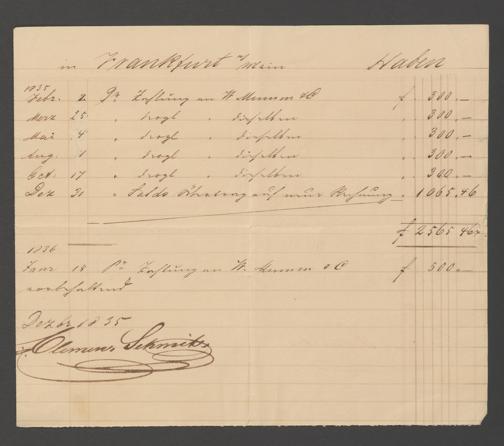 in Frankfurt a/Main Haben
1835
Febr. 2. Pr Zahlung an W. Mumm & C f. 300.—
Merz 25 " desgl " dieselben " 300.—
Mai 4 " desgl " dieselben " 300.—
Aug. 1 " desgl " dieselben " 300.—
Oct. 17 " desgl " dieselben " 300.—
Dez 31 " Saldo Übertrag auf neue Rechnung " 1065.46
f 2565.46
1836
Janr 18 Pr Zahlung an W. Mumm & C f 500.—
vorbehaltend
Dezbr 1835
Clemens Schmitz